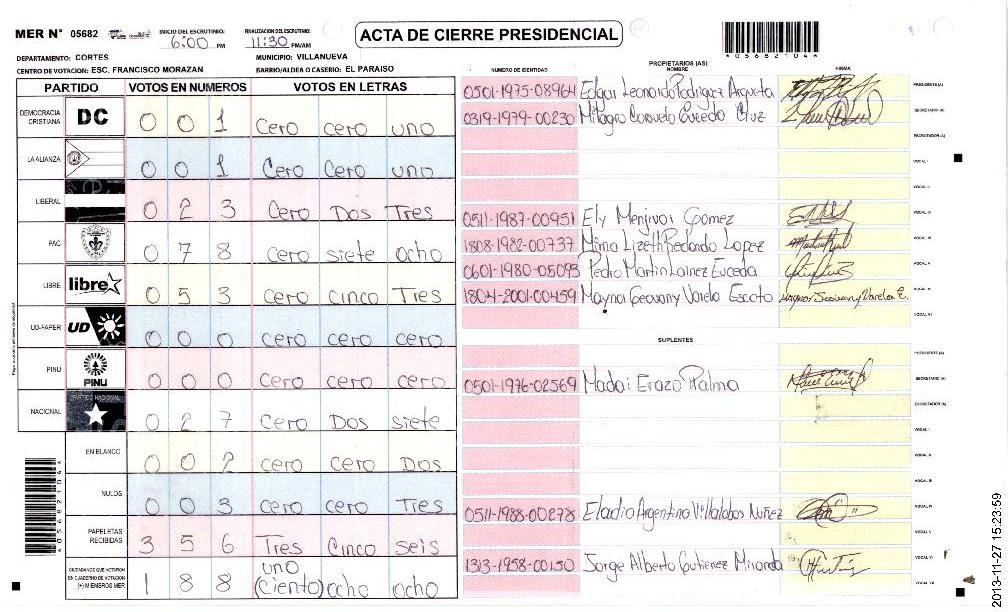 MER N° 05682
INICIO DEL ESCRUTINIO: 6:00 PM
FINALIZACION DEL ESCRUTINIO: 11:30 PM/AM
ACTA DE CIERRE PRESIDENCIAL
*05682104*
DEPARTAMENTO: CORTES
MUNICIPIO: VILLANUEVA
CENTRO DE VOTACION: ESC. FRANCISCO MORAZAN
BARRIO/ALDEA O CASERIO: EL PARAISO
PARTIDO VOTOS EN NUMEROS VOTOS EN LETRAS
DEMOCRACIA CRISTIANA DC 0 0 1 Cero cero uno
LA ALIANZA 0 0 1 Cero Cero uno
LIBERAL 0 2 3 Cero Dos Tres
PAC 0 7 8 Cero siete ocho
LIBRE libre 0 5 3 Cero Cinco Tres
UD-FAPER UD 0 0 0 Cero cero cero
PINU PINU 0 0 0 Cero cero cero
NACIONAL PARTIDO NACIONAL 0 2 7 Cero Dos siete
EN BLANCO 0 0 2 cero cero Dos
NULOS 0 0 3 cero cero Tres
PAPELETAS RECIBIDAS 3 5 6 Tres Cinco seis
CIUDADANOS QUE VOTARON EN CUADERNO DE VOTACION (+) MIEMBROS MER 1 8 8 uno (Ciento) ocho ocho
*05682104*
PROPIETARIOS (AS)
NUMERO DE IDENTIDAD NOMBRE FIRMA
0501-1975-08964 Edgar Leonardo Rodriguez Argueta PRESIDENTE (A)
0319-1979-00230 Milagro Consuelo Cacedo Cruz SECRETARIO (A)
ESCRUTADOR (A)
VOCAL I
VOCAL II
0511-1987-00951 Ely Menjivar Gomez VOCAL III
1808-1982-00737 Mirna Lizeth Redondo Lopez VOCAL IV
0601-1980-05093 Pedro Martin Lainez Euceda VOCAL V
1804-2001-00459 Maynor Geovanny Varela Escoto Maynor Geovanny Varela E.
SUPLENTES
PRESIDENTE (A)
0501-1976-02569 Madai Erazo Palma SECRETARIO (A)
ESCRUTADOR (A)
VOCAL I
VOCAL II
VOCAL III
0511-1988-00278 Eladia Argentina Villalobos Nuñez VOCAL IV
VOCAL V
1313-1958-00150 Jorge Alberto Gutierrez Miranda VOCAL VI
2013-11-27 15:23:59